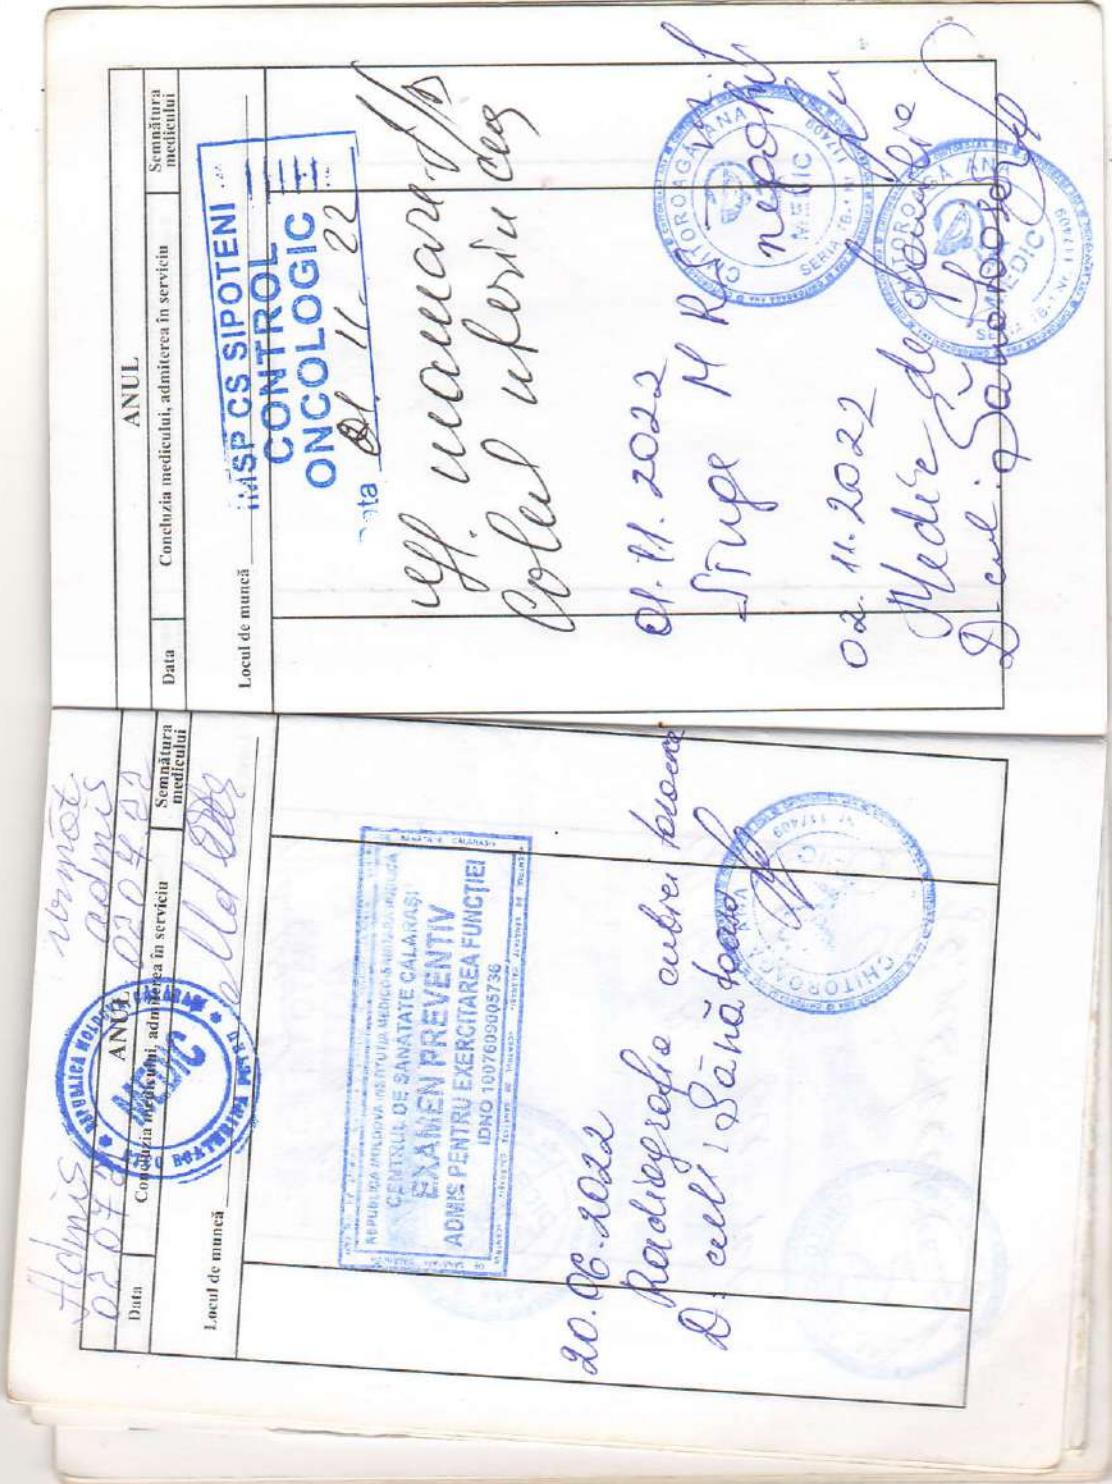 Admis
02.07.2
admis
02.07.22
ANUL
Data
Concluzia medicului, admiterea în serviciu
Semnătura medicului
Locul de muncă
REPUBLICA MOLDOVA
MEDIC
REPUBLICA MOLDOVA INSTITUȚIA MEDICO-SANITARA PUBLICA
CENTRUL DE SANATATE CALARAȘI
EXAMEN PREVENTIV
ADMIS PENTRU EXERCITAREA FUNCȚIEI
IDNO 1007609005736
20.06.2022
Radiografia cutiei toracice
D: cul: Sănătoasă
CHITOROAGA ANA
Nr 117409
ANUL
Data
Concluzia medicului, admiterea în serviciu
Semnătura medicului
Locul de muncă
IMSP CS SIPOTENI
CONTROL
ONCOLOGIC
Data 01. 11. 22
gl. mamare f/p
Colul uterin
01.11.2022
Sînge M R S
CHITOROAGA ANA
MEDIC
SERIA TB-1 Nr 117409
02.11.2022
Medic de familie
D. cul: Sănătoasă
CHITOROAGA ANA
MEDIC
SERIA TB-1 Nr. 117409